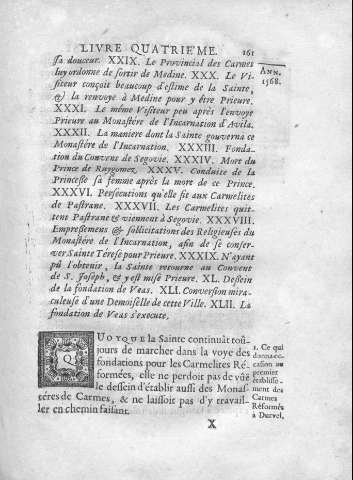 LIVRE QUATRIEME. 161
ſa douceur. XXIX. Le Provincial des Carmes
luy ordonne de ſortir de Medine. XXX. Le Vi-
ſiteur conçoit beaucoup d'eſtime de la Sainte,
& la renvoye à Medine pour y être Prieure.
XXXI. Le même Viſiteur peu après l'envoye
Prieure au Monaſtére de l'Incarnation d'Avila.
XXXII. La maniere dont la Sainte gouverna ce
Monaſtére de l'Incarnation. XXXIII. Fonda-
tion du Convens de Segovie. XXXIV. Mort du
Prince de Ruygomez. XXXV. Conduite de la
Princeſſe ſa femme après la mort de ce Prince.
XXXVI. Perſecutions qu'elle fit aux Carmelites
de Paſtrane. XXXVII. Les Carmelites quit-
tent Paſtrane & viennent à Segovie. XXXVIII.
Empreſſemens & ſollicitations des Religieuſes du
Monaſtére de l'Incarnation, afin de ſe conſer-
ver Sainte Téreſe pour Prieure. XXXIX. N'ayant
pû l'obtenir, la Sainte retourne au Convent
de S. Joſeph, & y eſt miſe Prieure. XL. Deſſein
de la fondation de Veas. XLI. Converſion mira-
culeuſe d'une Demoiſelle de cette Ville. XLII. La
fondation de Veas s'execute.
ANN.
1568.
QUOYQUE la Sainte continuât toû-
jours de marcher dans la voye des
fondations pour les Carmelites Ré-
formées, elle ne perdoit pas de vûë
le deſſein d'établir auſſi des Monaſ-
téres de Carmes, & ne laiſſoit pas d'y travail-
ler en chemin faiſant.
1. Ce qui
donna oc-
caſion au
premier
établiſſe-
ment des
Carmes
Réformés
à Durvel.
X